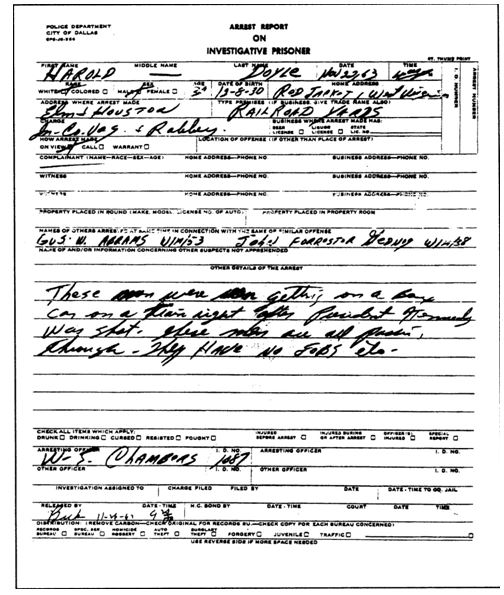 POLICE DEPARTMENT
CITY OF DALLAS
ARREST REPORT
ON
INVESTIGATIVE PRISONER
RT. THUMB PRINT
FIRST NAME MIDDLE NAME LAST NAME DATE TIME
HAROLD — Doyle Nov 22, 63
RACE SEX AGE DATE OF BIRTH HOME ADDRESS
WHITE COLORED MALE FEMALE 32 12-8-30 RED JACKET, West
I. D. NUMBER
ARREST NUMBER
ADDRESS WHERE ARREST MADE TYPE PREMISES (IF BUSINESS, GIVE TRADE NAME ALSO)
Elm & HOUSTON RAILROAD YARDS
CHARGE BUSINESS WHERE ARREST MADE HAS:
BEER LICENSE LIQUOR LICENSE STATE LIC. NO.
In-Co. Vag. & Robbery
HOW ARREST MADE LOCATION OF OFFENSE (IF OTHER THAN PLACE OF ARREST)
ON VIEW CALL WARRANT
COMPLAINANT (NAME—RACE—SEX—AGE) HOME ADDRESS—PHONE NO. BUSINESS ADDRESS—PHONE NO.
WITNESS HOME ADDRESS—PHONE NO. BUSINESS ADDRESS—PHONE NO.
WITNESS HOME ADDRESS—PHONE NO. BUSINESS ADDRESS—PHONE NO.
PROPERTY PLACED IN POUND (MAKE, MODEL, LICENSE NO. OF AUTO) PROPERTY PLACED IN PROPERTY ROOM
NAMES OF OTHERS ARRESTED AT SAME TIME IN CONNECTION WITH THE SAME OR SIMILAR OFFENSE
GUS. W. ABRAMS W/M/53 John FORRESTOR Gedney W/M/38
NAME OF AND/OR INFORMATION CONCERNING OTHER SUSPECTS NOT APPREHENDED
OTHER DETAILS OF THE ARREST
These men were getting on a box
car on a train right after President Kennedy
was shot. these men are all passing
through - They HAVE NO JOBS etc -
CHECK ALL ITEMS WHICH APPLY:
DRUNK DRINKING CURSED RESISTED FOUGHT INJURED BEFORE ARREST INJURED DURING OR AFTER ARREST OFFICER(S) INJURED SPECIAL REPORT
ARRESTING OFFICER I. D. NO. ARRESTING OFFICER I. D. NO.
W. S. CHAMBERS 1087
OTHER OFFICER I. D. NO. OTHER OFFICER I. D. NO.
INVESTIGATION ASSIGNED TO CHARGE FILED FILED BY DATE DATE-TIME TO CO. JAIL
RELEASED BY DATE-TIME H.C. BOND BY DATE-TIME COURT DATE TIME
11-26-63
DISTRIBUTION: (REMOVE CARBON—CHECK ORIGINAL FOR RECORDS BU.—CHECK COPY FOR EACH BUREAU CONCERNED)
RECORDS BUREAU SPEC. SER. BUREAU HOMICIDE ROBBERY AUTO THEFT BURGLARY THEFT FORGERY JUVENILE TRAFFIC
USE REVERSE SIDE IF MORE SPACE NEEDED